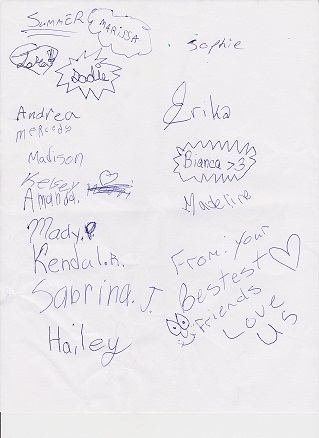 Summer
Marissa
Sadie
Andrea
mercedes
Madison
Kelsey
Amanda.
Mady.P.
Kendal.R.
Sabrina.J.
Hailey
Sophie
Erika
Bianca >3
Madeline
From: Your
Bestest
Friends
Love
Us